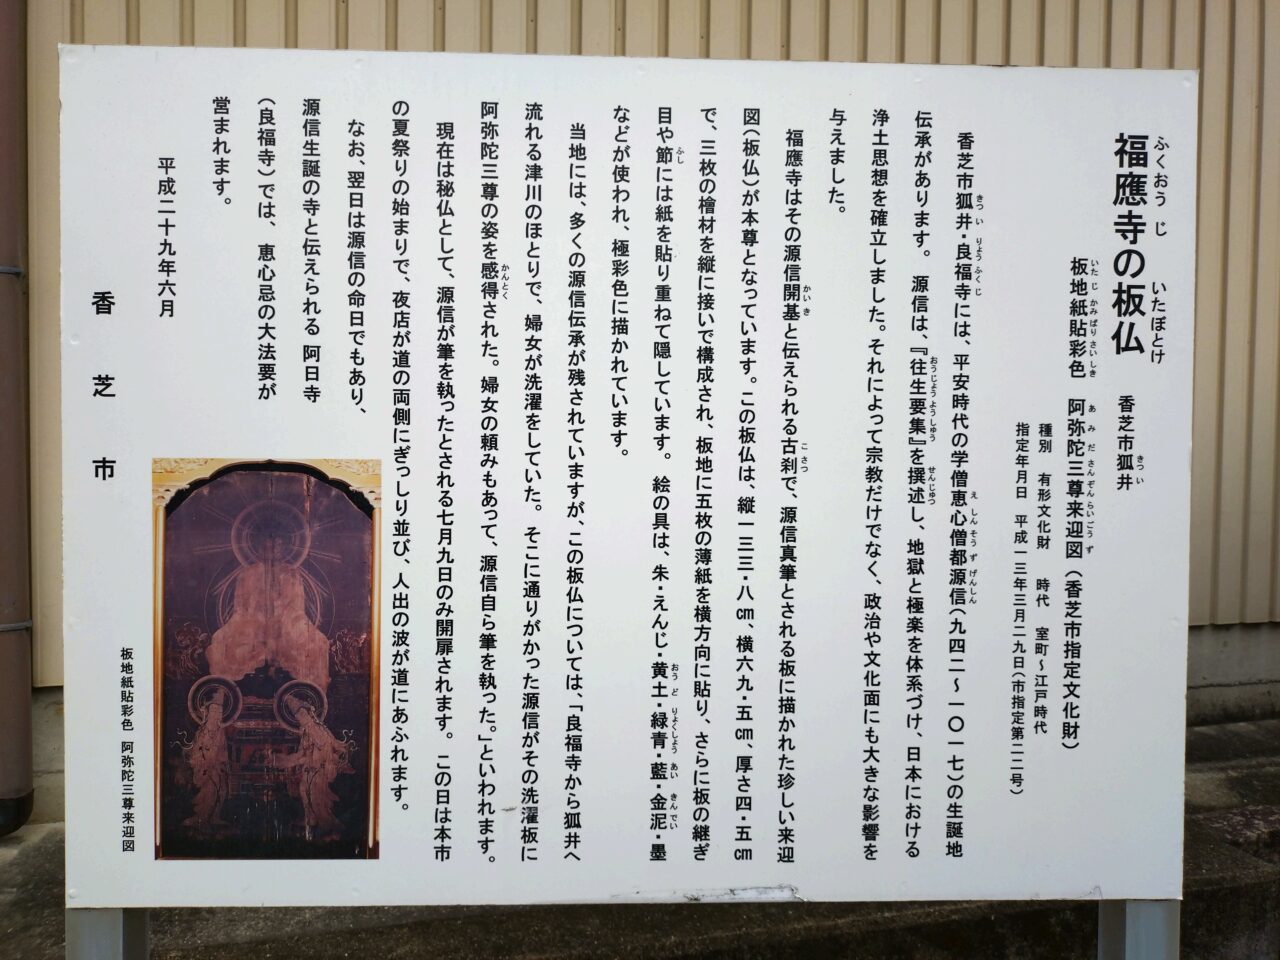 福應寺の板仏　香芝市狐井
ふくおうじ　いたぼとけ　きつい
板地紙貼彩色　阿弥陀三尊来迎図（香芝市指定文化財）
いたじかみばりさいしき　あみださんぞんらいごうず
種別　有形文化財　時代　室町～江戸時代
指定年月日　平成一三年三月二九日（市指定第二二号）
香芝市狐井・良福寺には、平安時代の学僧恵心僧都源信（九四二～一〇一七）の生誕地
きつい　りょうふくじ　えしんそうずげんしん
伝承があります。源信は、『往生要集』を撰述し、地獄と極楽を体系づけ、日本における
おうじょうようしゅう　せんじゅつ
浄土思想を確立しました。それによって宗教だけでなく、政治や文化面にも大きな影響を
与えました。
福應寺はその源信開基と伝えられる古刹で、源信真筆とされる板に描かれた珍しい来迎
かいき　こさつ
図（板仏）が本尊となっています。この板仏は、縦一三三・八㎝、横六九・五㎝、厚さ四・五㎝
で、三枚の檜材を縦に接いで構成され、板地に五枚の薄紙を横方向に貼り、さらに板の継ぎ
目や節には紙を貼り重ねて隠しています。絵の具は、朱・えんじ・黄土・緑青・藍・金泥・墨
ふし　おうど　りょくしょう　あい　きんでい
などが使われ、極彩色に描かれています。
当地には、多くの源信伝承が残されていますが、この板仏については、「良福寺から狐井へ
流れる津川のほとりで、婦女が洗濯をしていた。そこに通りがかった源信がその洗濯板に
阿弥陀三尊の姿を感得された。婦女の頼みもあって、源信自ら筆を執った。」といわれます。
かんとく
現在は秘仏として、源信が筆を執ったとされる七月九日のみ開扉されます。この日は本市
の夏祭りの始まりで、夜店が道の両側にぎっしり並び、人出の波が道にあふれます。
なお、翌日は源信の命日でもあり、
源信生誕の寺と伝えられる阿日寺
（良福寺）では、恵心忌の大法要が
営まれます。
平成二十九年六月
香芝市
板地紙貼彩色　阿弥陀三尊来迎図